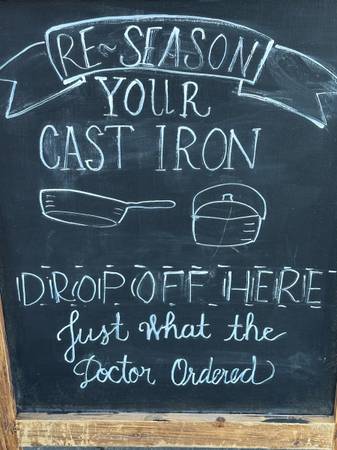 RE-SEASON
YOUR
CAST IRON
DROP OFF HERE
Just What the
Doctor Ordered